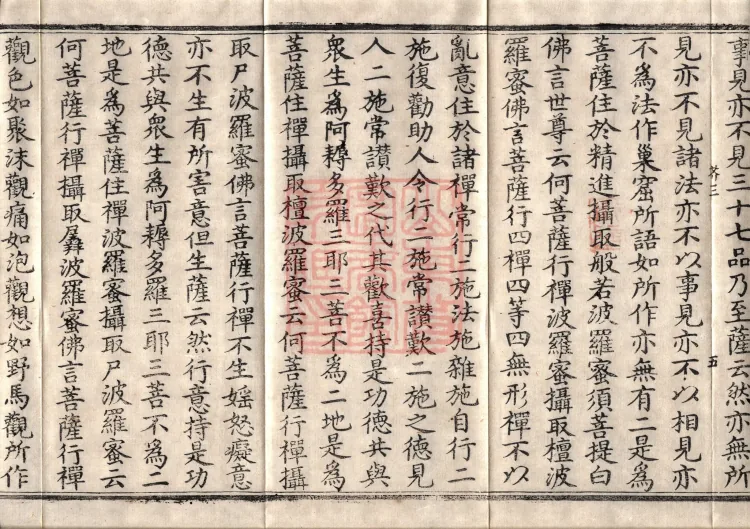 事見亦不見三十七品乃至薩云然亦無所
芥三
五
見亦不見諸法亦不以事見亦不以相見亦
不為法作巢窟所語如所作亦無有二是為
菩薩住於精進攝取般若波羅蜜須菩提白
佛言世尊云何菩薩行禪波羅蜜攝取檀波
羅蜜佛言菩薩行四禪四等四無形禪不以
亂意住於諸禪常行二施法施雜施自行二
施復勸助人令行二施常讃歎二施之德見
人二施常讃歎之代其歡喜持是功德共與
衆生為阿耨多羅三耶三菩不為二地是為
菩薩住禪攝取檀波羅蜜云何菩薩行禪攝
取尸波羅蜜佛言菩薩行禪不生婬怒癡意
亦不生有所害意但生薩云然行意持是功
德共與衆生為阿耨多羅三耶三菩不為二
地是為菩薩住禪波羅蜜攝取尸波羅蜜云
何菩薩行禪攝取羼波羅蜜佛言菩薩行禪
觀色如聚沫觀痛如泡觀想如野馬觀所作